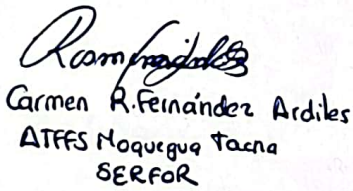 Carmen R. Fernández Ardiles
ATFFS Moquegua Tacna
SERFOR